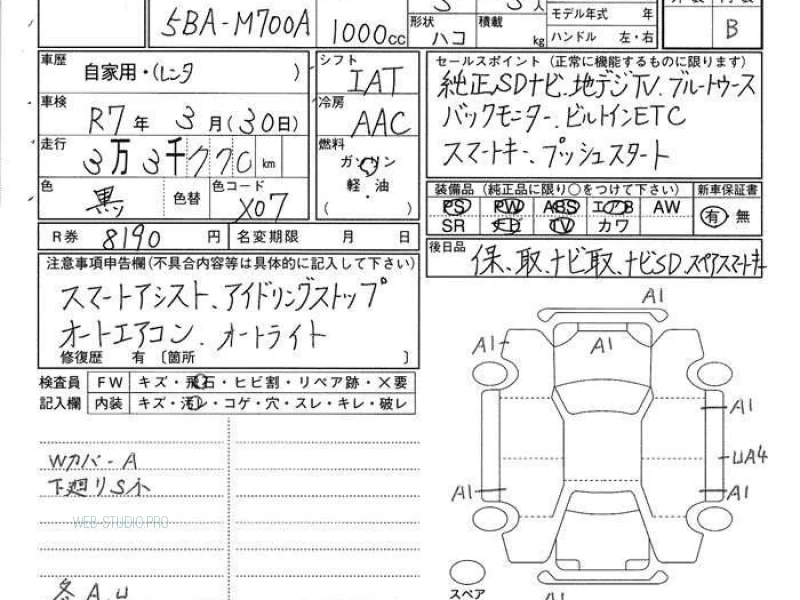 5BA-M700A
1000cc
形状
ハコ
積載
kg
人
モデル年式 年
ハンドル 左・右
B
車歴
自家用・(レンタ )
シフト
IAT
車検
R7年 3月(30日)
冷房
AAC
走行
3万3千770km
燃料
ガソリン
軽・油
( )
色
黒
色替
色コード
X07
R券 8190 円
名変期限 月 日
セールスポイント (正常に機能するものに限ります)
純正SDナビ、地デジTV、ブルートゥース
バックモニター、ビルトインETC
スマートキー、プッシュスタート
装備品 (純正品に限り○をつけて下さい)
新車保証書
PS PW ABS エアB AW
SR ナビ TV カワ
有・無
後日品
保、取、ナビ取、ナビSD、スペアスマートキー
注意事項申告欄(不具合内容等は具体的に記入して下さい)
スマートアシスト、アイドリングストップ
オートエアコン、オートライト
修復歴 有 〔箇所 〕
検査員
記入欄
FW キズ・飛石・ヒビ割・リペア跡・×要
内装 キズ・汚レ・コゲ・穴・スレ・キレ・破レ
Wカバー A
下廻りS小
WEB-STUDIO.PRO
各A,U
A1
A1
A1
A1
UA4
A1
A1
スペア
A1